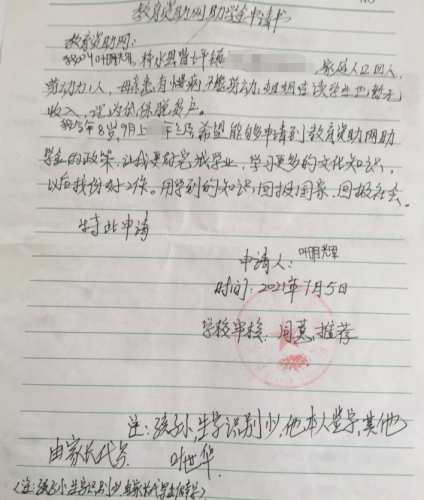 教育资助网助学金申请书
教育资助网:
我叫叶明辉, 家庭人口四人,
劳动力1人, 母亲患有慢病不能劳动,姐姐在读学生也暂无
收入, 评为低保脱贫户。
我今年8岁,9月上一年级希望能够申请到教育资助网助
学金的政策, 让我更好完成学业, 学习更多的文化知识,
以后找份好工作。用学到的知识,回报国家、回报社会。
特此申请
申请人: 叶明辉
时间: 2021年7月5日
学校审核: 同意推荐
注:孩子小,生字识别少,他本人签字,其他
由家长代写. 叶世华
(注:孩子小生字识别少,由家长代写